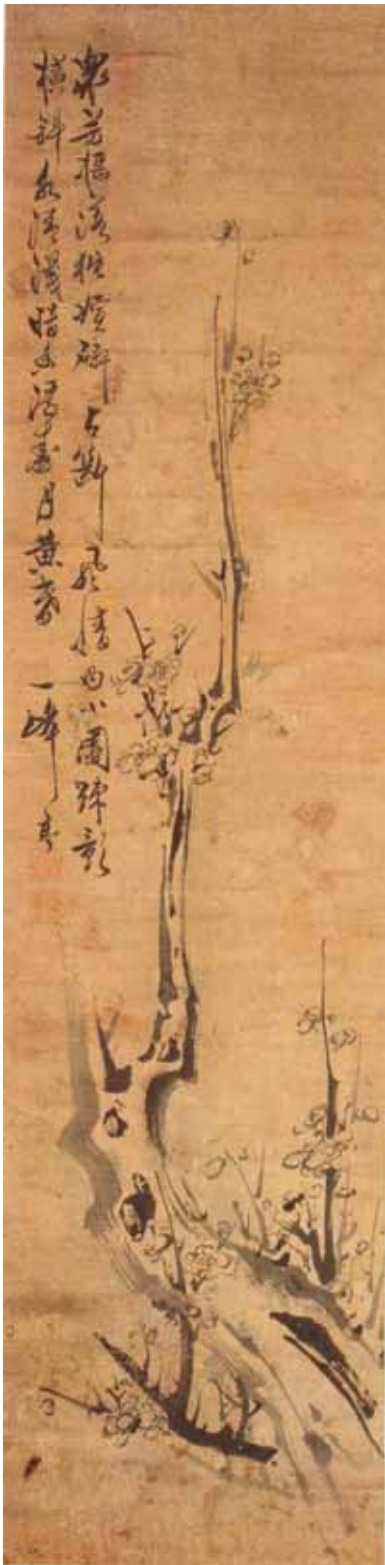 衆芳搖落獨暄姸占斷風情向小園疎影
橫斜水淸淺暗香浮動月黃昏 一峰